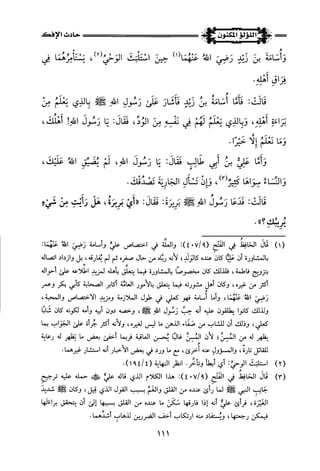 اللؤلؤ المكنون
حادث الإفك
وَأُسَامَةَ بنَ زَيْدٍ رَضِيَ اللهُ عَنْهُمَا(١) حِينَ اسْتَلْبَثَ الوَحْيُ(٢)، يَسْتَأْمِرُهُمَا فِي
فِرَاقِ أَهْلِهِ.
قَالَتْ: فَأَمَّا أُسَامَةُ بنُ زَيْدٍ فَأَشَارَ عَلَى رَسُولِ اللهِ ﷺ بِالذِي يَعْلَمُ مِنْ
بَرَاءَةِ أَهْلِهِ، وَبِالذِي يَعْلَمُ لَهُمْ فِي نَفْسِهِ مِنَ الوُدِّ، فَقَالَ: يَا رَسُولَ اللهِ! أَهْلُكَ،
وَمَا نَعْلَمُ إِلَّا خَيْرًا.
وَأَمَّا عَلِيُّ بنُ أَبِي طَالِبٍ فَقَالَ: يَا رَسُولَ اللهِ، لَمْ يُضَيِّقِ اللهُ عَلَيْكَ،
وَالنِّسَاءُ سِوَاهَا كَثِيرٌ(٣)، وَإِنْ تَسْأَلِ الجَارِيَةَ تَصْدُقْكَ.
قَالَتْ: فَدَعَا رَسُولُ اللهِ ﷺ بَرِيرَةَ: فَقَالَ: «أَيْ بَرِيرَةُ، هَلْ رَأَيْتِ مِنْ شَيْءٍ
يُرِيبُكِ؟».
(١) قَالَ الحَافِظُ فِي الفَتْحِ (٤٠٧/٩): والعلَّة في اختصاص عليٍّ وأسامة رَضِيَ اللهُ عَنْهُمَا:
بالمشاورة غيره، أن عليًّا كان عنده كالوَلَدِ؛ لأنه ربَّاه من حال صغره ثم لم يُفَارقه، بل وازداد اتصاله
بتزويج فاطمة، فلذلك كان مخصوصًا بالمشاورة فيما يتعلق بأهله لمزيد اطلاعه على أحواله
أكثر من غيره، وكان أهل مشورته فيما يتعلق بالأمور العامَّة أكابر الصحابة كأبي بكر وعمر
رَضِيَ اللهُ عَنْهُمَا، وأما أسامة فهو كعلي في طول الملازمة ومزيد الاختصاص والمحبة،
ولذلك كانوا يطلقون عليه أنه حِبُّ رسول الله ﷺ، وخصه دون أبيه وأمه لكونه كان شابًّا
كعلي، وذلك أن للشاب من صَفَاءِ الذهن ما ليس لغيره، ولأنه أكثر جُرأة على الجَوَاب بما
يظهر له من المسِنّ، لأن المسِنّ غالبًا يُحسن العاقبة فربما أخفى بعض ما يَظهر له رعاية
للقائل تارةً، والمسؤول عنه أخرى، مع ما ورد في بعض الأخبار أنه استشار غيرهما.
(٢) اسْتَلْبَثَ الوحيُ: أي أبطأ وتأخَّر. انظر النهاية (١٩٤/٤).
(٣) قَالَ الحَافِظُ فِي الفَتْحِ (٤٠٧/٩): هذا الكلام الذي قاله عليٌّ حمله عليه ترجيح
جَانِبِ النبي ﷺ لما رأى عنده من القلق والغَمِّ بسبب القول الذي قيل، وكان ﷺ شديدَ
الغَيْرَة، فرأى عليٌّ أنه إذا فارقها سَكَنَ ما عنده من القلق بسببها إلى أن يتحقق براءتها
فيمكن رجعتها، ويُستفاد منه ارتكاب أخف الضررين لذهاب أشدِّهما.
١١١